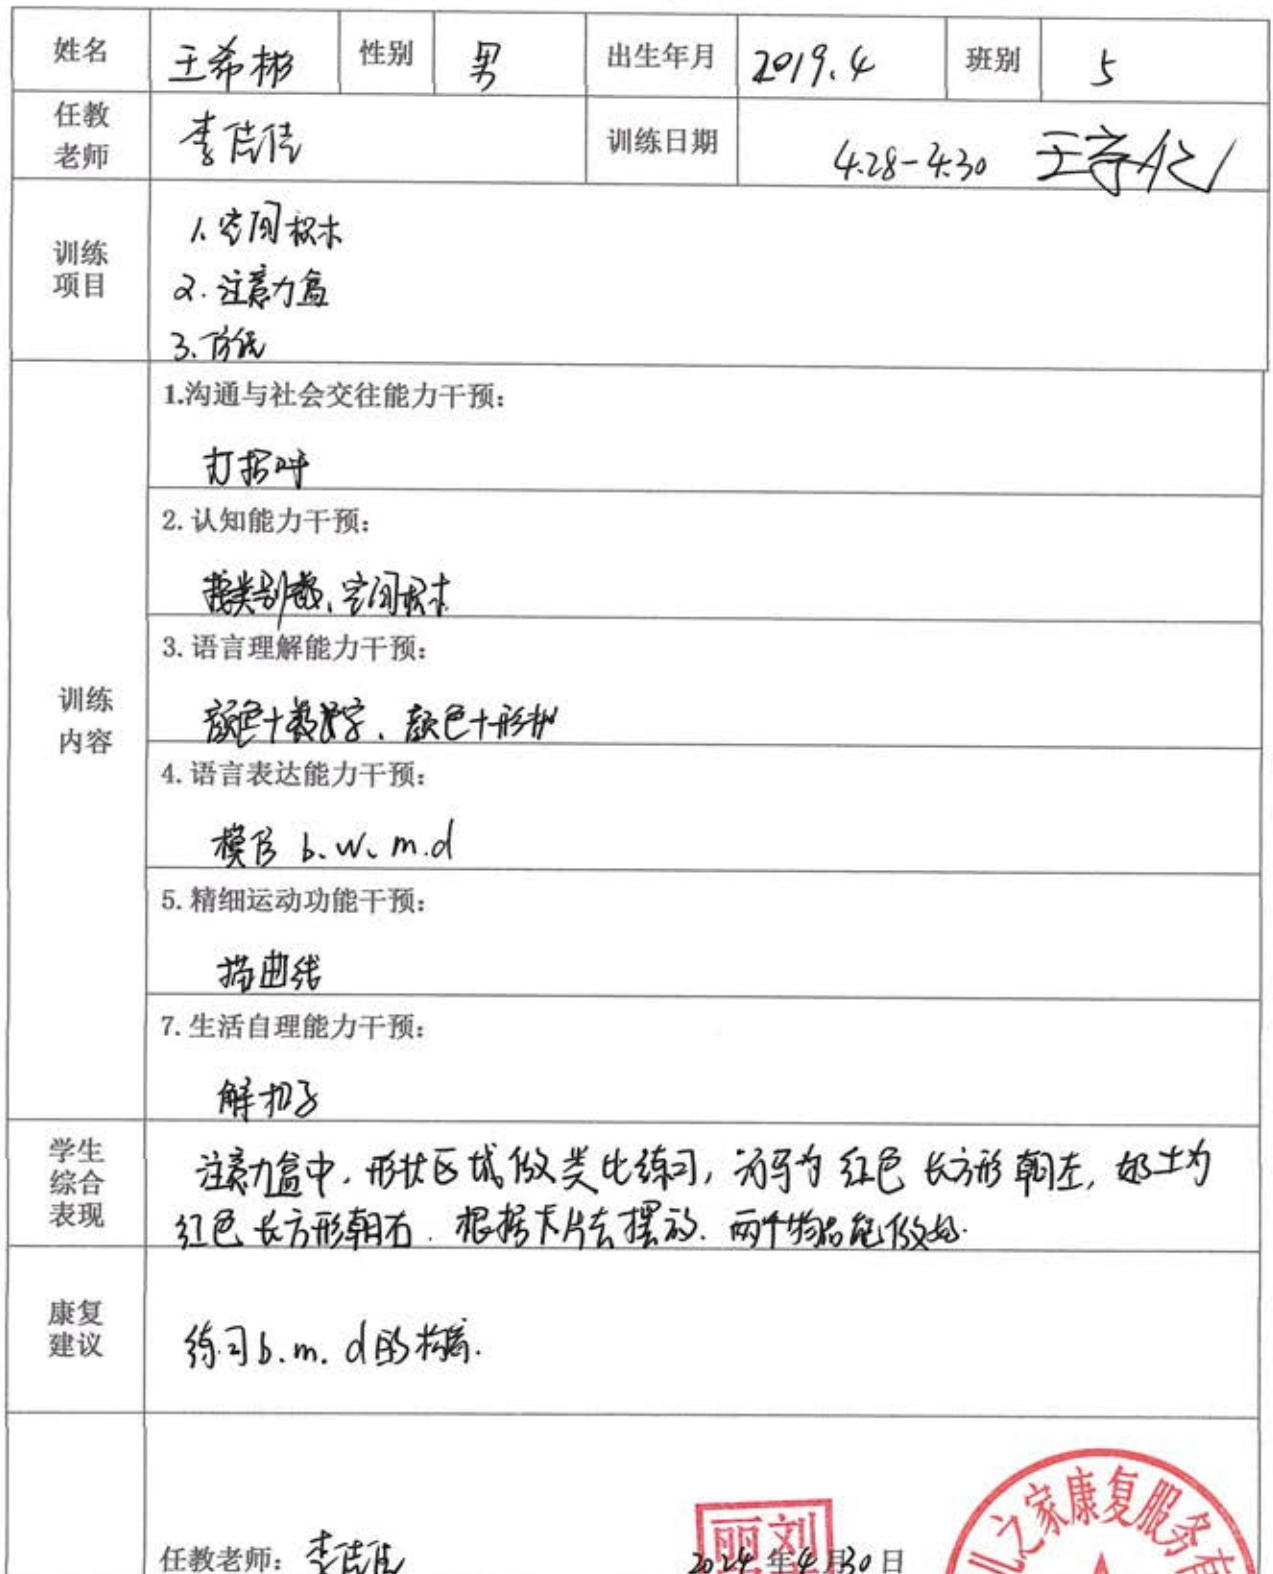 姓名 王希彬 性别 男 出生年月 2019.4 班别 5
任教老师 李佳佳 训练日期 4.28-4.30
训练项目
1.空间积木
2.注意力盒
3.仿编
训练内容
1.沟通与社会交往能力干预：
打招呼
2.认知能力干预：
按类别 、空间积木
3.语言理解能力干预：
颜色+数字、颜色+形状
4.语言表达能力干预：
模仿 b.w.m.d
5.精细运动功能干预：
描曲线
7.生活自理能力干预：
解扣子
学生综合表现
注意力盒中,形状区域做类比练习, 为 红色 长方形朝左, 为
红色长方形朝右.根据卡片去摆放.两个物品能做好.
康复建议
练习b.m.d的构音.
任教老师：李佳佳 2024年4月30日
刘丽
儿之家康复服务有